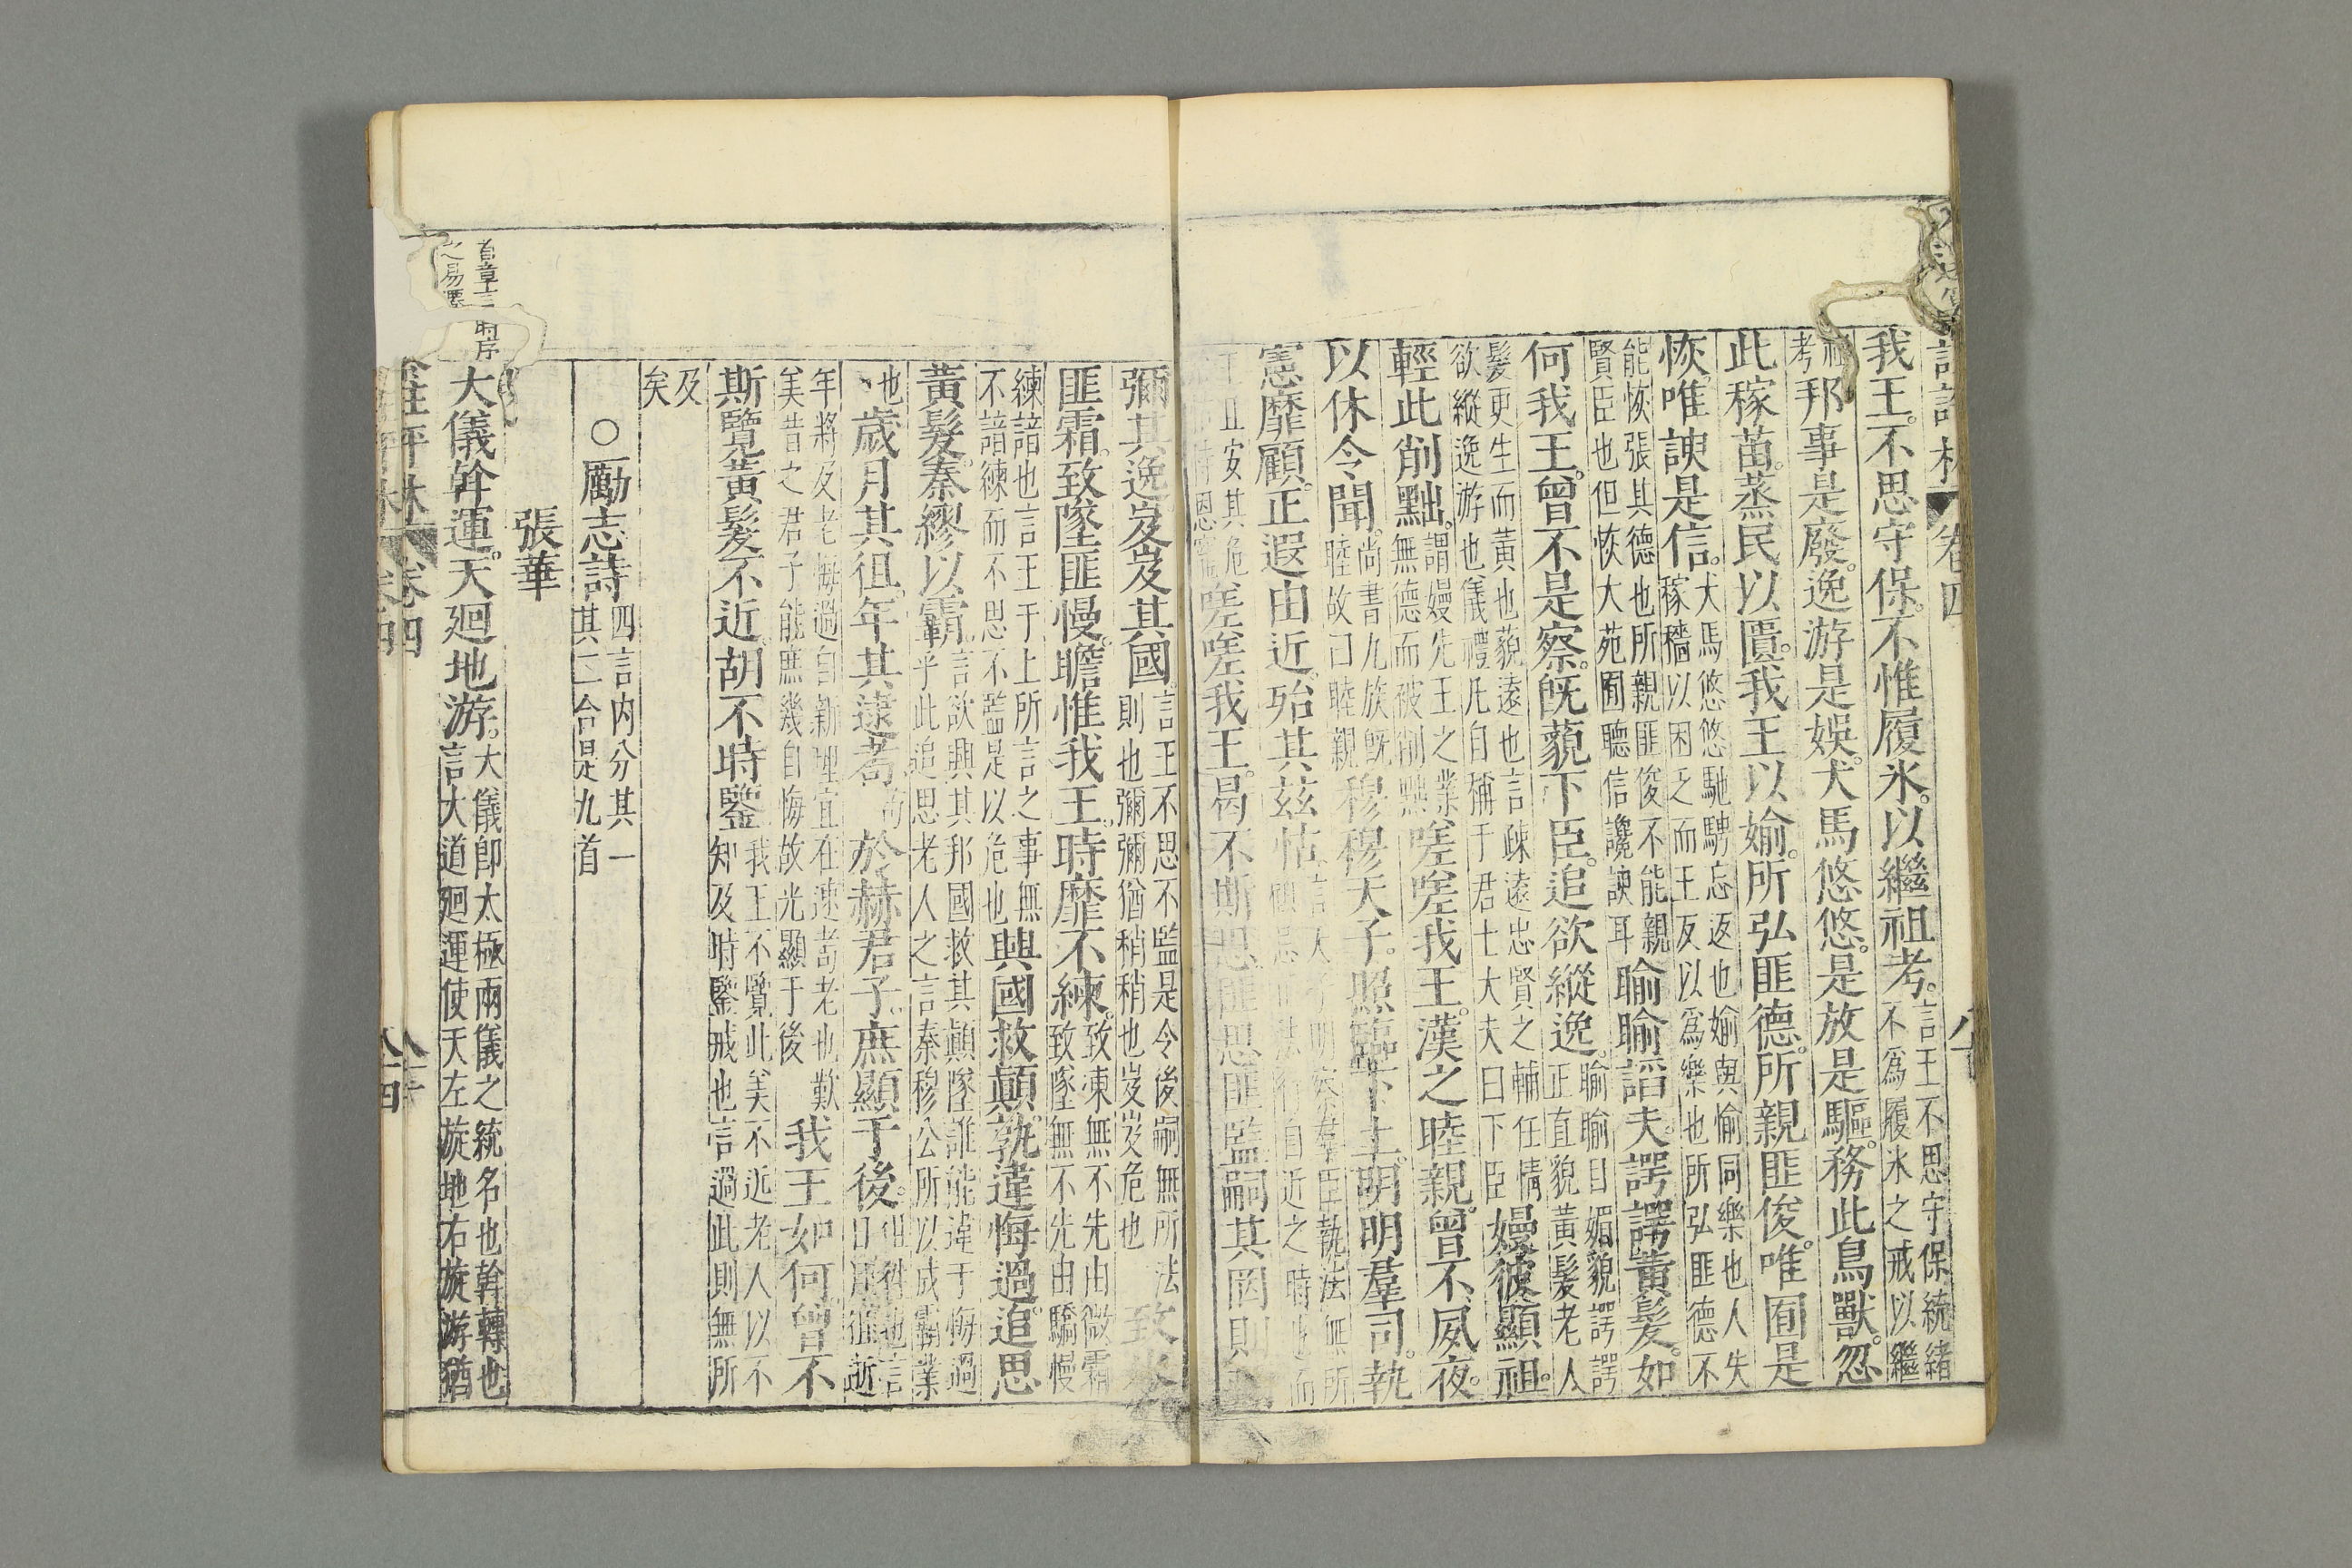 我王。不思守保。不惟履氷。以繼祖考。言王不思守保統緒不爲履氷之戒以繼
祖考邦事是廢。逸游是娛。犬馬悠悠。是放是驅。務此鳥獸。忽
此稼苗。蒸民以匱。我王以媮。所弘匪德。所親匪俊。唯囿是
恢。唯諛是信。犬馬悠悠馳騁忘返也媮與愉同樂也人失稼穡以困乏而王反以爲樂也所弘匪德不
能恢張其德也所親匪俊不能親賢臣也但恢大苑囿聽信讒諛耳睮睮諂夫。諤諤黃髮。如
何我王。曾不是察。旣藐下臣。追欲縱逸。睮睮目媚貌諤諤正直貌黃髮老人
髮更生而黃也藐遠也言疎遠忠賢之輔任情欲縱逸游也儀禮凡自稱于君士大夫曰下臣嫚彼顯祖。
輕此削黜。謂嫚先王之業無德而被削黜嗟嗟我王。漢之睦親。曾不夙夜。
以休令聞。尚書九族旣睦故曰睦親穆穆天子。照臨下土。明明羣司。執
憲靡顧。正遐由近。殆其茲怙。
嗟嗟我王。曷不斯思匪思匪監嗣其罔則
彌其逸岌岌其國。言王不思不監是令後嗣無所法則也彌彌猶稍稍也岌岌危也致氷
匪霜。致墜匪慢。瞻惟我王。時靡不練。致凍無不先由微霜致墜無不先由驕慢
練諳也言王于上所言之事無不諳練而不思不監是以危也興國救顛。孰違悔過。追思
黃髮。秦繆以霸。言欲興其邦國救其顛墜誰能違于悔過乎此追思老人之言秦穆公所以成霸業
也歲月其徂。年其逮耇於赫君子。庶顯于後。
年將及老悔過自新理宜在速耇老也歎美昔之君子能庶幾自悔故光顯于後我王如何曾不
斯覽黃髮不近。胡不時鑒我王不覽此美不近老人以不知及時鑒戒也言過此則無所
及矣
○勵志詩四言內分其一其二合是九首
張華
大儀斡運。天廻地游。大儀卽太極兩儀之統名也斡轉也言大道廻運使天左旋地右旋游猶